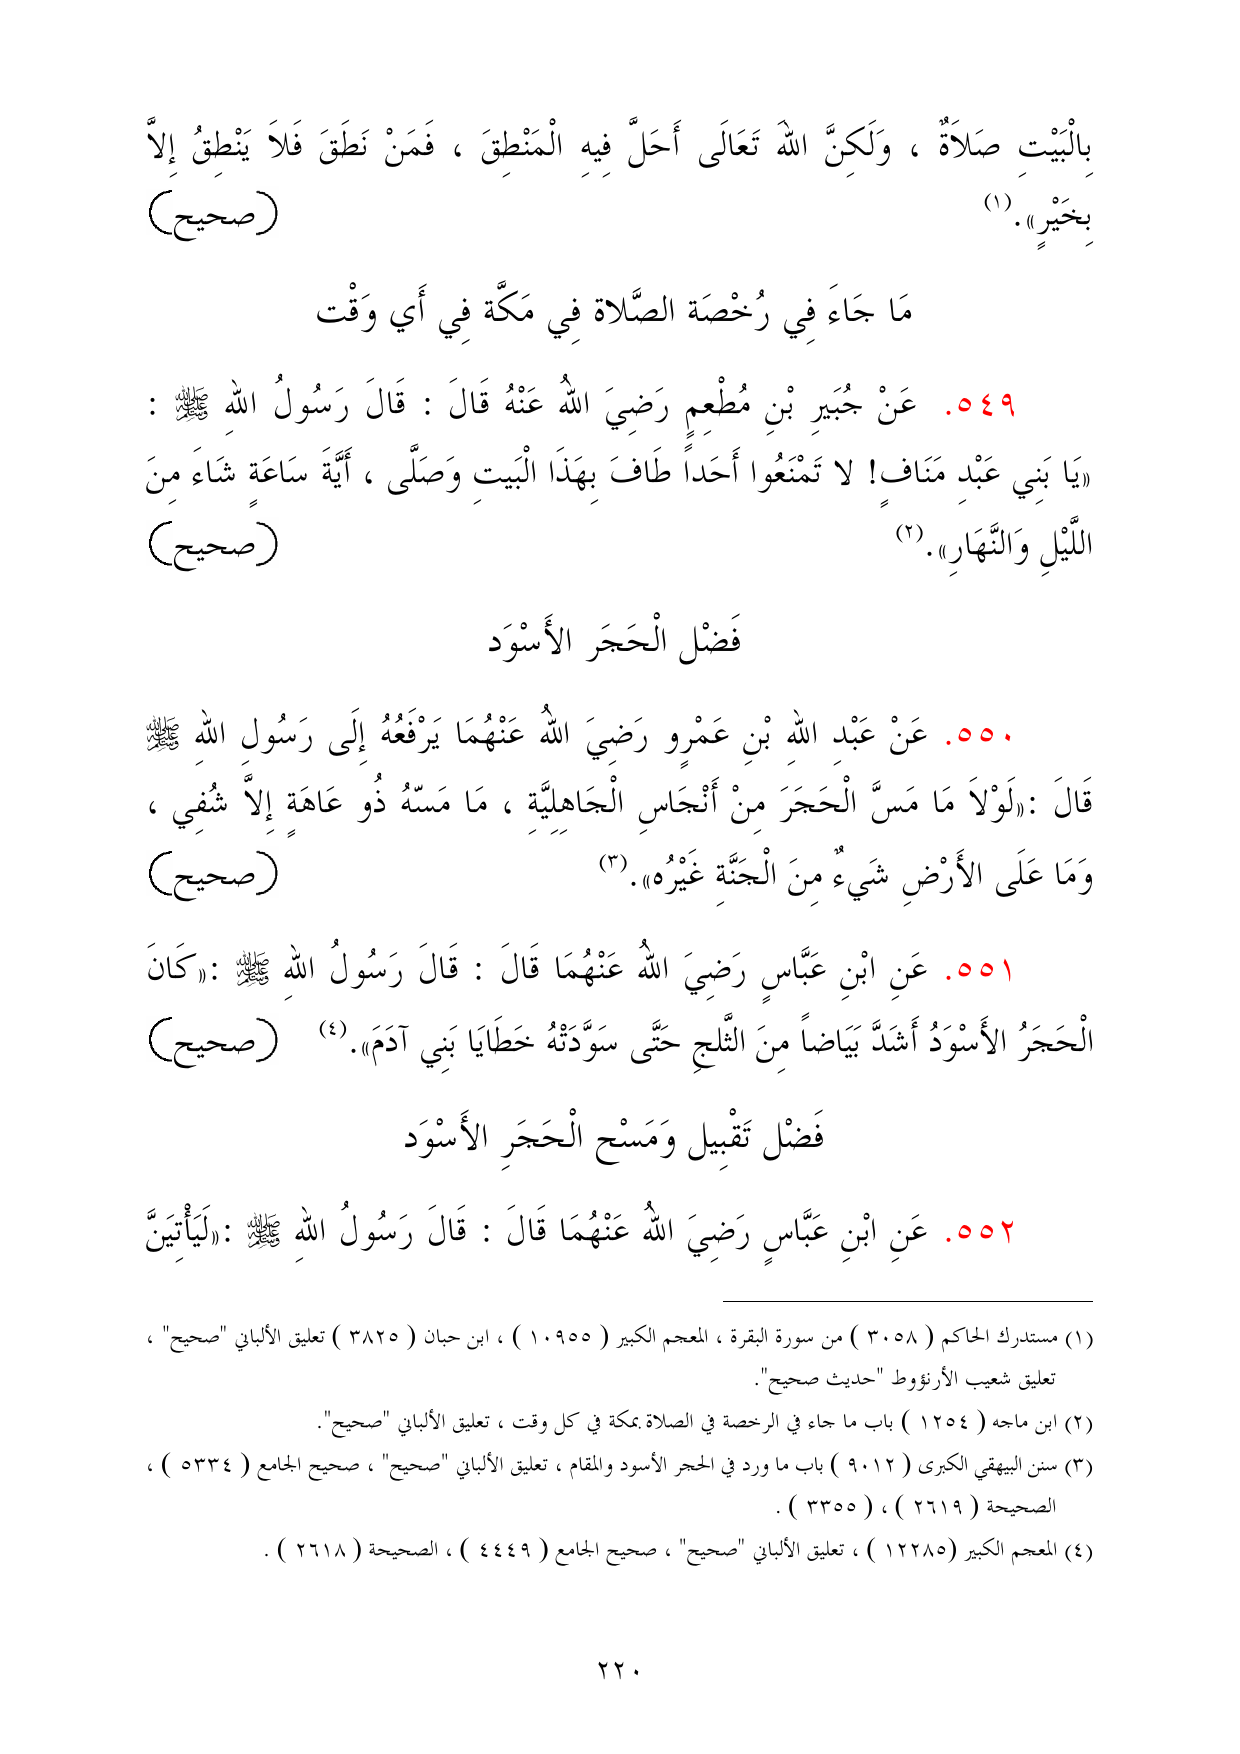 بِالْبَيْتِ صَلاَةٌ ، وَلَكِنَّ اللهَ تَعَالَى أَحَلَّ فِيهِ الْمَنْطِقَ ، فَمَنْ نَطَقَ فَلاَ يَنْطِقُ إِلاَّ
بِخَيْرٍ». (١) (صحيح)
مَا جَاءَ فِي رُخْصَة الصَّلاة فِي مَكَّة فِي أَي وَقْت
٥٤٩. عَنْ جُبَيرِ بْنِ مُطْعِمٍ رَضِيَ اللهُ عَنْهُ قَالَ : قَالَ رَسُولُ اللهِ ﷺ :
«يَا بَنِي عَبْدِ مَنَافٍ! لا تَمْنَعُوا أَحَداً طَافَ بِهَذَا الْبَيتِ وَصَلَّى ، أَيَّةَ سَاعَةٍ شَاءَ مِنَ
اللَّيْلِ وَالنَّهَارِ». (٢) (صحيح)
فَضْل الْحَجَر الأَسْوَد
٥٥٠. عَنْ عَبْدِ اللهِ بْنِ عَمْرٍو رَضِيَ اللهُ عَنْهُمَا يَرْفَعُهُ إِلَى رَسُولِ اللهِ ﷺ
قَالَ :«لَوْلاَ مَا مَسَّ الْحَجَرَ مِنْ أَنْجَاسِ الْجَاهِلِيَّةِ ، مَا مَسّهُ ذُو عَاهَةٍ إِلاَّ شُفِي ،
وَمَا عَلَى الأَرْضِ شَيءٌ مِنَ الْجَنَّةِ غَيْرُه». (٣) (صحيح)
٥٥١. عَنِ ابْنِ عَبَّاسٍ رَضِيَ اللهُ عَنْهُمَا قَالَ : قَالَ رَسُولُ اللهِ ﷺ :«كَانَ
الْحَجَرُ الأَسْوَدُ أَشَدَّ بَيَاضاً مِنَ الثَّلجِ حَتَّى سَوَّدَتْهُ خَطَايَا بَنِي آدَمَ». (٤) (صحيح)
فَضْل تَقْبِيل وَمَسْح الْحَجَرِ الأَسْوَد
٥٥٢. عَنِ ابْنِ عَبَّاسٍ رَضِيَ اللهُ عَنْهُمَا قَالَ : قَالَ رَسُولُ اللهِ ﷺ :«لَيَأْتِيَنَّ
(١) مستدرك الحاكم ( ٣٠٥٨ ) من سورة البقرة ، المعجم الكبير ( ١٠٩٥٥ ) ، ابن حبان ( ٣٨٢٥ ) تعليق الألباني "صحيح" ،
تعليق شعيب الأرنؤوط "حديث صحيح".
(٢) ابن ماجه ( ١٢٥٤ ) باب ما جاء في الرخصة في الصلاة بمكة في كل وقت ، تعليق الألباني "صحيح".
(٣) سنن البيهقي الكبرى ( ٩٠١٢ ) باب ما ورد في الحجر الأسود والمقام ، تعليق الألباني "صحيح" ، صحيح الجامع ( ٥٣٣٤ ) ،
الصحيحة ( ٢٦١٩ ) ، ( ٣٣٥٥ ) .
(٤) المعجم الكبير (١٢٢٨٥ ) ، تعليق الألباني "صحيح" ، صحيح الجامع ( ٤٤٤٩ ) ، الصحيحة ( ٢٦١٨ ) .
٢٢٠